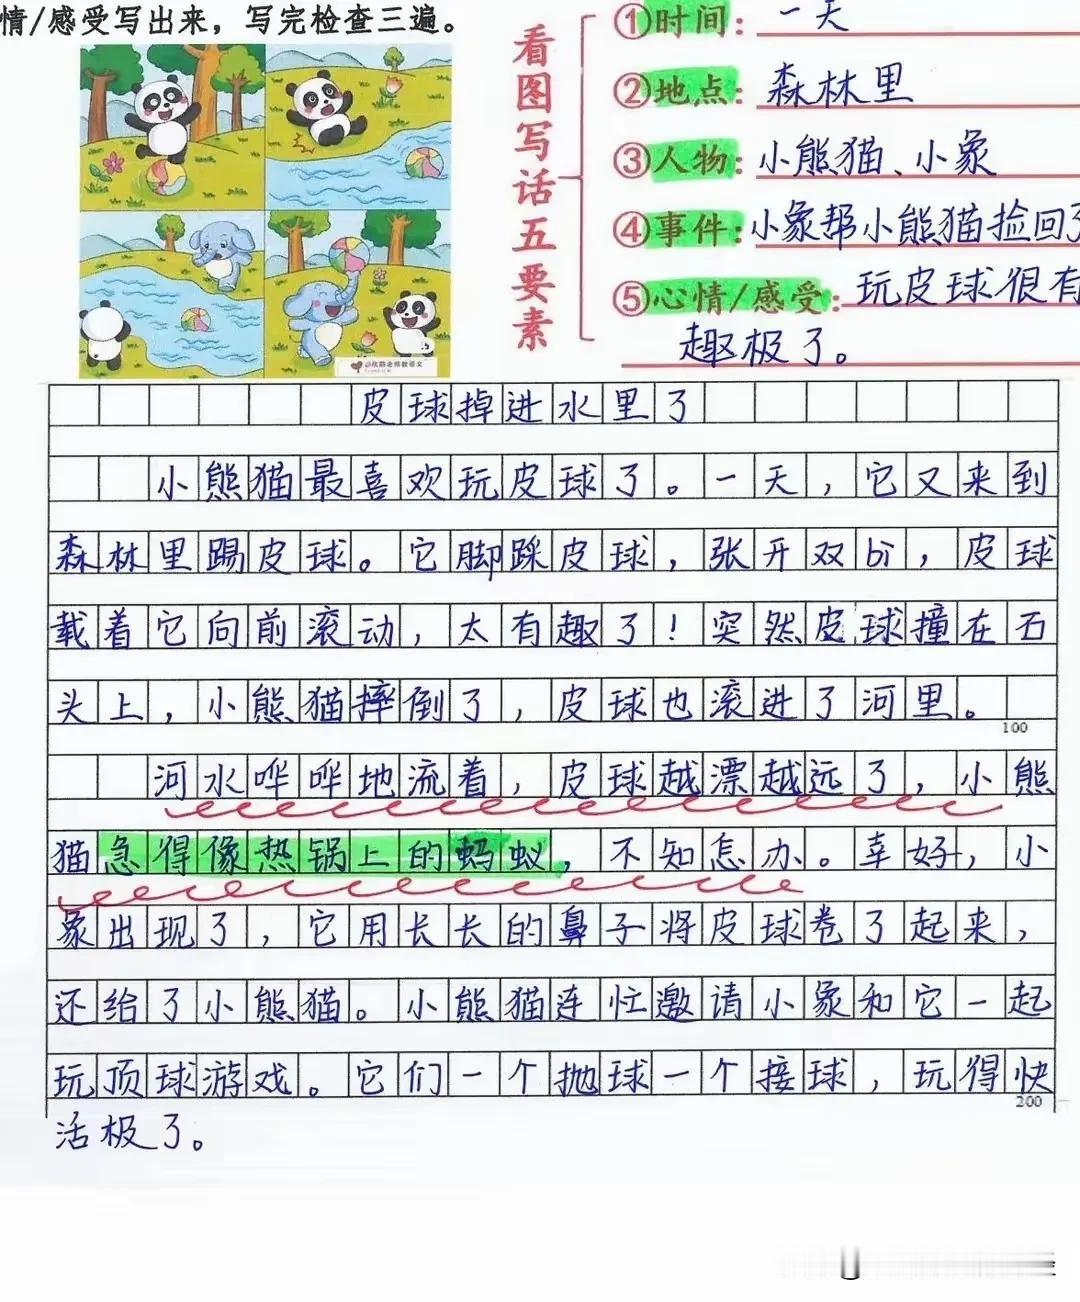 情/感受写出来，写完检查三遍。
看图写话五要素
①时间：一天
②地点：森林里
③人物：小熊猫、小象
④事件：小象帮小熊猫捡回了
⑤心情/感受：玩皮球很有
趣极了。
皮球掉进水里了
小熊猫最喜欢玩皮球了。一天，它又来到
森林里踢皮球。它脚踩皮球，张开双bì，皮球
载着它向前滚动，太有趣了！突然皮球撞在石
头上，小熊猫摔倒了，皮球也滚进了河里。
100
河水哗哗地流着，皮球越漂越远了，小熊
猫急得像热锅上的蚂蚁，不知怎办。幸好，小
象出现了，它用长长的鼻子将皮球卷了起来，
还给了小熊猫。小熊猫连忙邀请小象和它一起
玩顶球游戏。它们一个抛球一个接球，玩得快
200
活极了。